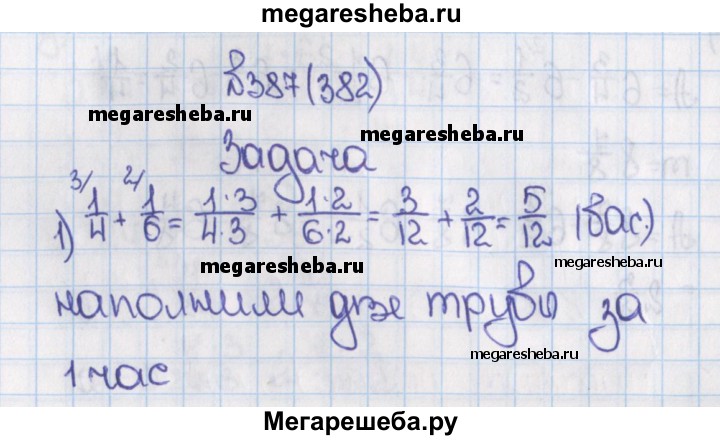 megaresheba.ru
№387(382)
megaresheba.ru megaresheba.ru
Задача
1) 3/ 1/4 + 2/ 1/6 = 1·3/4·3 + 1·2/6·2 = 3/12 + 2/12 = 5/12 (бас.)
megaresheba.ru megaresheba.ru
наполнили две трубы за
megaresheba.ru
1 час
Мегарешеба.ру